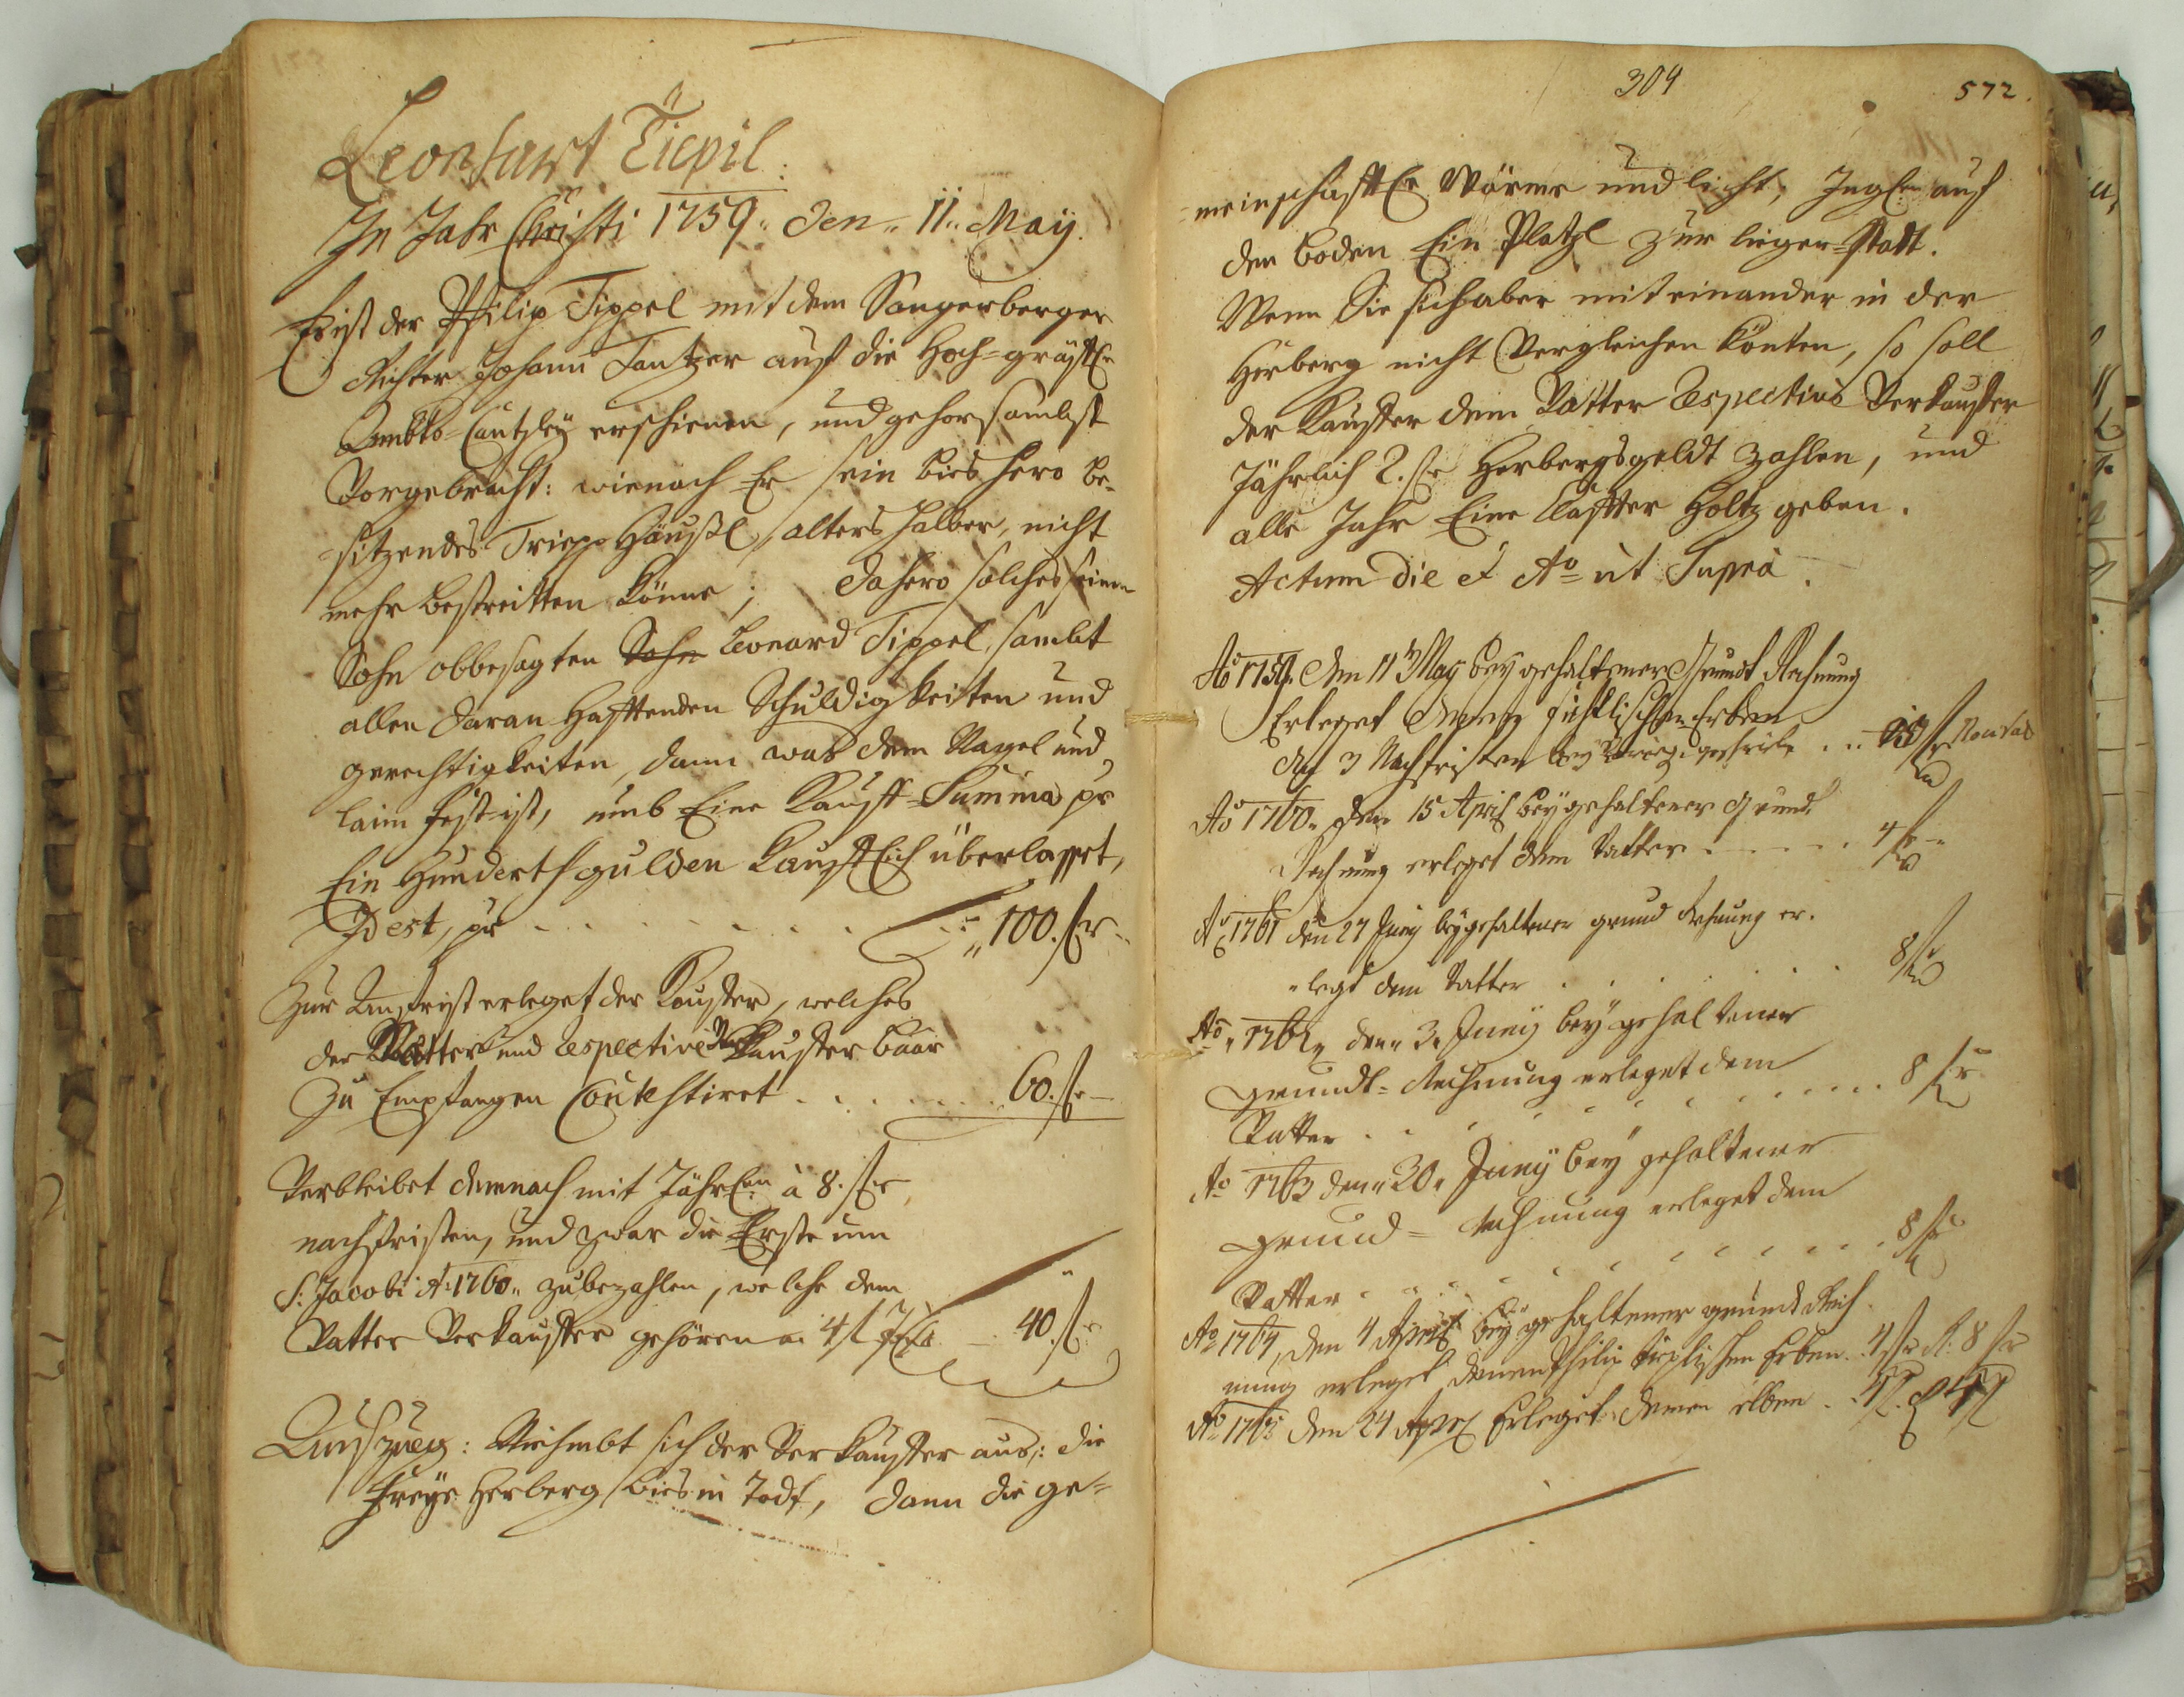 Leonhart Tiepil:
In Jahr Christi 1759. Den 11. Maij.
Erist der Philip Tippel mit dem Sangerberger
Richter Johann Tantzer auf die Hoch-gräffl.
Ambts-Cantzleÿ erschienen, und gehorsambst
Vorgebracht: wienach Er sein bies hero be-
sitzendes Triepp Häußl, alters halber, nicht
mehr bestreitten könne; dahero solches seinen
Sohn obbesagten Sohn Leonard Tippel, sambt
allen daran hafftenden Schuldigkeiten und
gerechtigkeiten, dann was dem Nagel und
laim fest ist, umb Eine Kauff-Summa pr
Ein Hunderth gulden Kaufflich überlasset,
Id est, pr 100. fr
Zur Anfrist erleget der Kauffer, welches
der Vatter und respective Verkauffer baar
zu Empfangen Contestiret 60. fr
Verbleibet demnach mit Jährl. à 8. fr
nachfristen, und zwar die Erste um
S: Jacobi A: 1760. zubezahlen, welche dem
Vatter Verkauffer gehören 40. fr
Auszueg: Niehmbt sich der Verkauffer aus: die
freÿe Herberg bies in Todt, dann die ge-
304
572.
meinschafftl. Wärme und licht, auf
den boden Ein Platzl zur lieger-statt.
Wenn Sie sich aber miteinander in der
Herberg nicht Vergleichen könten, so soll
der Kauffer dem Vatter respective Verkauffer
Jährlich 2. fr Herbergsgeldt zahlen, und
alle Jahr Eine Claffter Holtz geben.
Actum die et Ao ut Supra.
Ao 1759. den 11 Maÿ beÿ gehaltener Grundt Rechnung
Erleget denen Erben
an 3 Nachfristen
Ao 1760. den 15 April beÿ gehaltener Grund
Rechnung erleget dem Vatter 4 fr
Ao 1761 den 27 Junÿ beÿ gehaltener grund Rechnung er-
legt dem Vatter 8 fr
Ao 1762 den 3. Junÿ beÿ gehaltener
grundt-Rechnung erleget dem
Vatter 8 fr
Ao 1763 den 30. Junÿ beÿ gehaltener
grund-Rechnung erleget dem
Vatter 8 fr
Ao 1764, den 4 April beÿ gehaltener grundt Rech-
nung erleget denen Philip Tieplischen Erben 4 fr 8 fr
Ao 1765 den 24 April Erleget denen